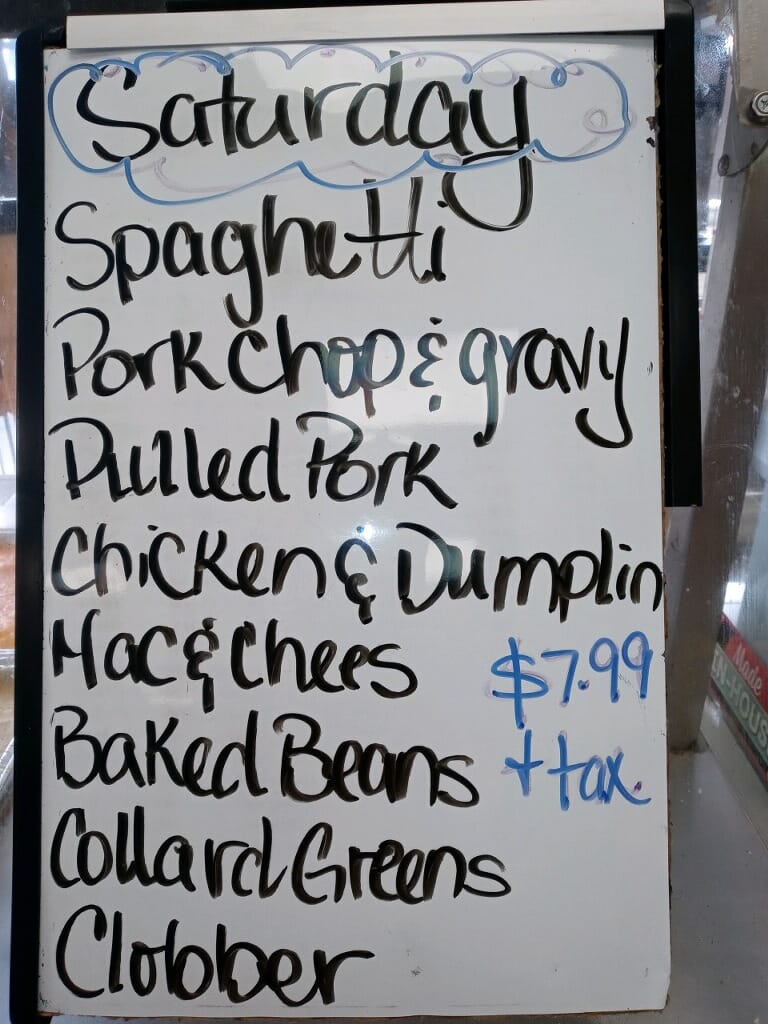 Saturday
Spaghetti
Pork Chop & gravy
Pulled Pork
Chicken & Dumplin
Mac & Chees
$7.99
Baked Beans
+ tax
Collard Greens
Clobber
Made
IN-HOUS